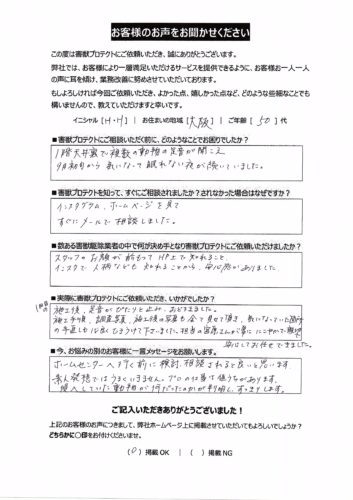 お客様のお声をお聞かせください
この度は害獣プロテクトにご依頼いただき、誠にありがとうございます。
弊社では、お客様により一層満足いただけるサービスを提供できるように、お客様お一人一人
の声に耳を傾け、業務改善に努めさせていただいております。
もしよろしければ今回ご依頼いただき、よかった点、嬉しかった点など、どのような些細なことでも
構いませんので、教えていただけますと幸いです。
イニシャル [ H・H ] お住まいの地域 [ 大阪 ] ご年齢 [ 50 ] 代
■害獣プロテクトにご相談いただく前に、どのようなことでお困りでしたか?
1階天井裏で複数の動物の足音が聞こえ
9月初旬から気になって眠れない夜が続いていました。
■害獣プロテクトを知って、すぐにご相談されましたか?されなかった場合はなぜですか?
インスタグラム、ホームページを見て
すぐにメールで相談しました。
■数ある害獣駆除業者の中で何が決め手となり害獣プロテクトにご依頼いただけましたか?
スタッフのお顔が前もってHP上で知れること、
インスタで人柄なども知れることから、安心感がありました。
■実際に害獣プロテクトにご依頼いただき、いかがでしたか?
施工後、足音がぴたりと止み、おどろきました。
施工手順、調査写真、施工後の写真も全て見せて頂き、気になっていた箇所
の手直しも心良く引きうけて下さいました。担当の
安心してお任せできました。
■今、お悩みの別のお客様に一言メッセージをお願いします。
ホームセンターへ行く前に検討、相談されると良いと思います
素人発想ではうまくいきません。プロの仕事は値うちがあります。
侵入していた動物が何だったのかが判明し、すっきりします。
ご記入いただきありがとうございました!
上記のお客様のお声につきまして、弊社ホームページ上に掲載させていただいてもよろしいでしょうか?
どちらかに○印をお付けくださいませ。
( O ) 掲載 OK | ( ) 掲載 NG